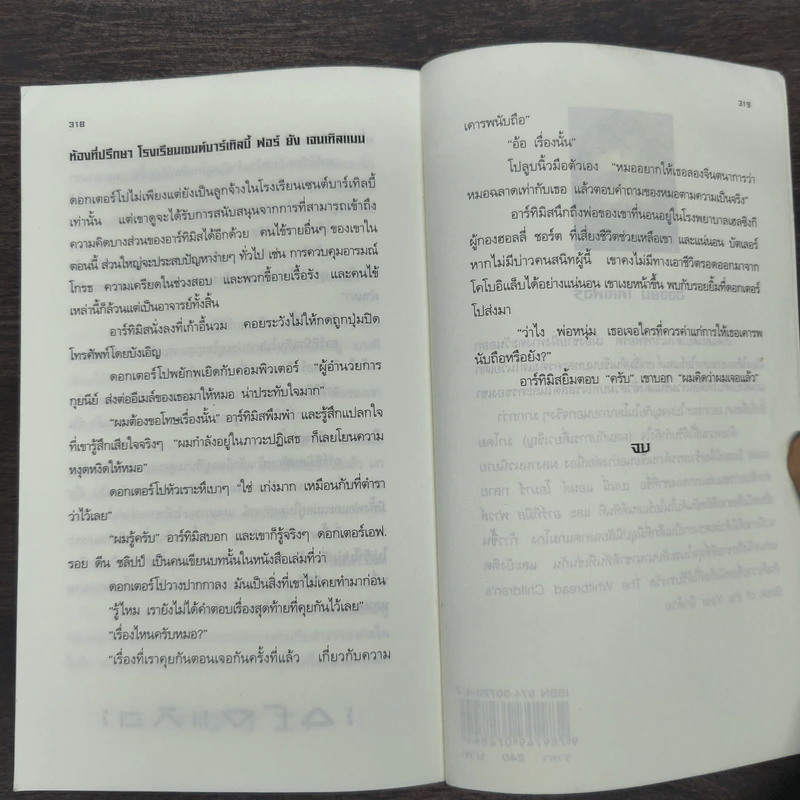 318
ห้องที่ปรึกษา โรงเรียนเซนต์บาร์เทิลบี้ ฟอร์ ยัง เจนเทิลแมน
ดอกเตอร์โปไม่เพียงแต่ยังเป็นลูกจ้างในโรงเรียนเซนต์บาร์เทิลบี้
เท่านั้น แต่เขาดูจะได้รับการสนับสนุนจากการที่สามารถเข้าถึง
ความคิดบางส่วนของอาร์ทิมิสได้อีกด้วย คนไข้รายอื่นๆ ของเขาใน
ตอนนี้ ส่วนใหญ่จะประสบปัญหาง่ายๆ ทั่วไป เช่น การควบคุมอารมณ์
โกรธ ความเครียดในช่วงสอบ และพวกขี้อายเรื้อรัง และคนไข้
เหล่านี้ก็ล้วนแต่เป็นอาจารย์ทั้งสิ้น
อาร์ทิมิสนั่งลงที่เก้าอี้นวม คอยระวังไม่ให้กดถูกปุ่มปิด
โทรศัพท์โดยบังเอิญ
ดอกเตอร์โปพยักพเยิดกับคอมพิวเตอร์ "ผู้อำนวยการ
กุยนีย์ ส่งต่ออีเมล์ของเธอมาให้หมอ น่าประทับใจมาก"
"ผมต้องขอโทษเรื่องนั้น" อาร์ทิมิสพึมพำ และรู้สึกแปลกใจ
ที่เขารู้สึกเสียใจจริงๆ "ผมกำลังอยู่ในภาวะปฏิเสธ ก็เลยโยนความ
หงุดหงิดให้หมอ"
ดอกเตอร์โปหัวเราะหึเบาๆ "ใช่ เก่งมาก เหมือนกับที่ตำรา
ว่าไว้เลย"
"ผมรู้ครับ" อาร์ทิมิสบอก และเขาก็รู้จริงๆ ดอกเตอร์เอฟ.
รอย ดีน ชลิปป์ เป็นคนเขียนบทนั้นในหนังสือเล่มที่ว่า
ดอกเตอร์โปวางปากกาลง มันเป็นสิ่งที่เขาไม่เคยทำมาก่อน
"รู้ไหม เรายังไม่ได้คำตอบเรื่องสุดท้ายที่คุยกันไว้เลย"
"เรื่องไหนครับหมอ?"
"เรื่องที่เราคุยกันตอนเจอกันครั้งที่แล้ว เกี่ยวกับความ
319
เคารพนับถือ"
"อ้อ เรื่องนั้น"
โปลูบนิ้วมือตัวเอง "หมออยากให้เธอลองจินตนาการว่า
หมอฉลาดเท่ากับเธอ แล้วตอบคำถามของหมอตามความเป็นจริง"
อาร์ทิมิสนึกถึงพ่อของเขาที่นอนอยู่ในโรงพยาบาลเฮลซิงกิ
ผู้กองฮอลลี่ ชอร์ต ที่เสี่ยงชีวิตช่วยเหลือเขา และแน่นอน บัตเลอร์
หากไม่มีบ่าวคนสนิทผู้นี้ เขาคงไม่มีทางเอาชีวิตรอดออกมาจาก
โคโบอิแล็บได้อย่างแน่นอน เขาเงยหน้าขึ้น พบกับรอยยิ้มที่ดอกเตอร์
โปส่งมา
"ว่าไง พ่อหนุ่ม เธอเจอใครที่ควรค่าแก่การให้เธอเคารพ
นับถือหรือยัง?"
อาร์ทิมิสยิ้มตอบ "ครับ" เขาบอก "ผมคิดว่าผมเจอแล้ว"
จบ